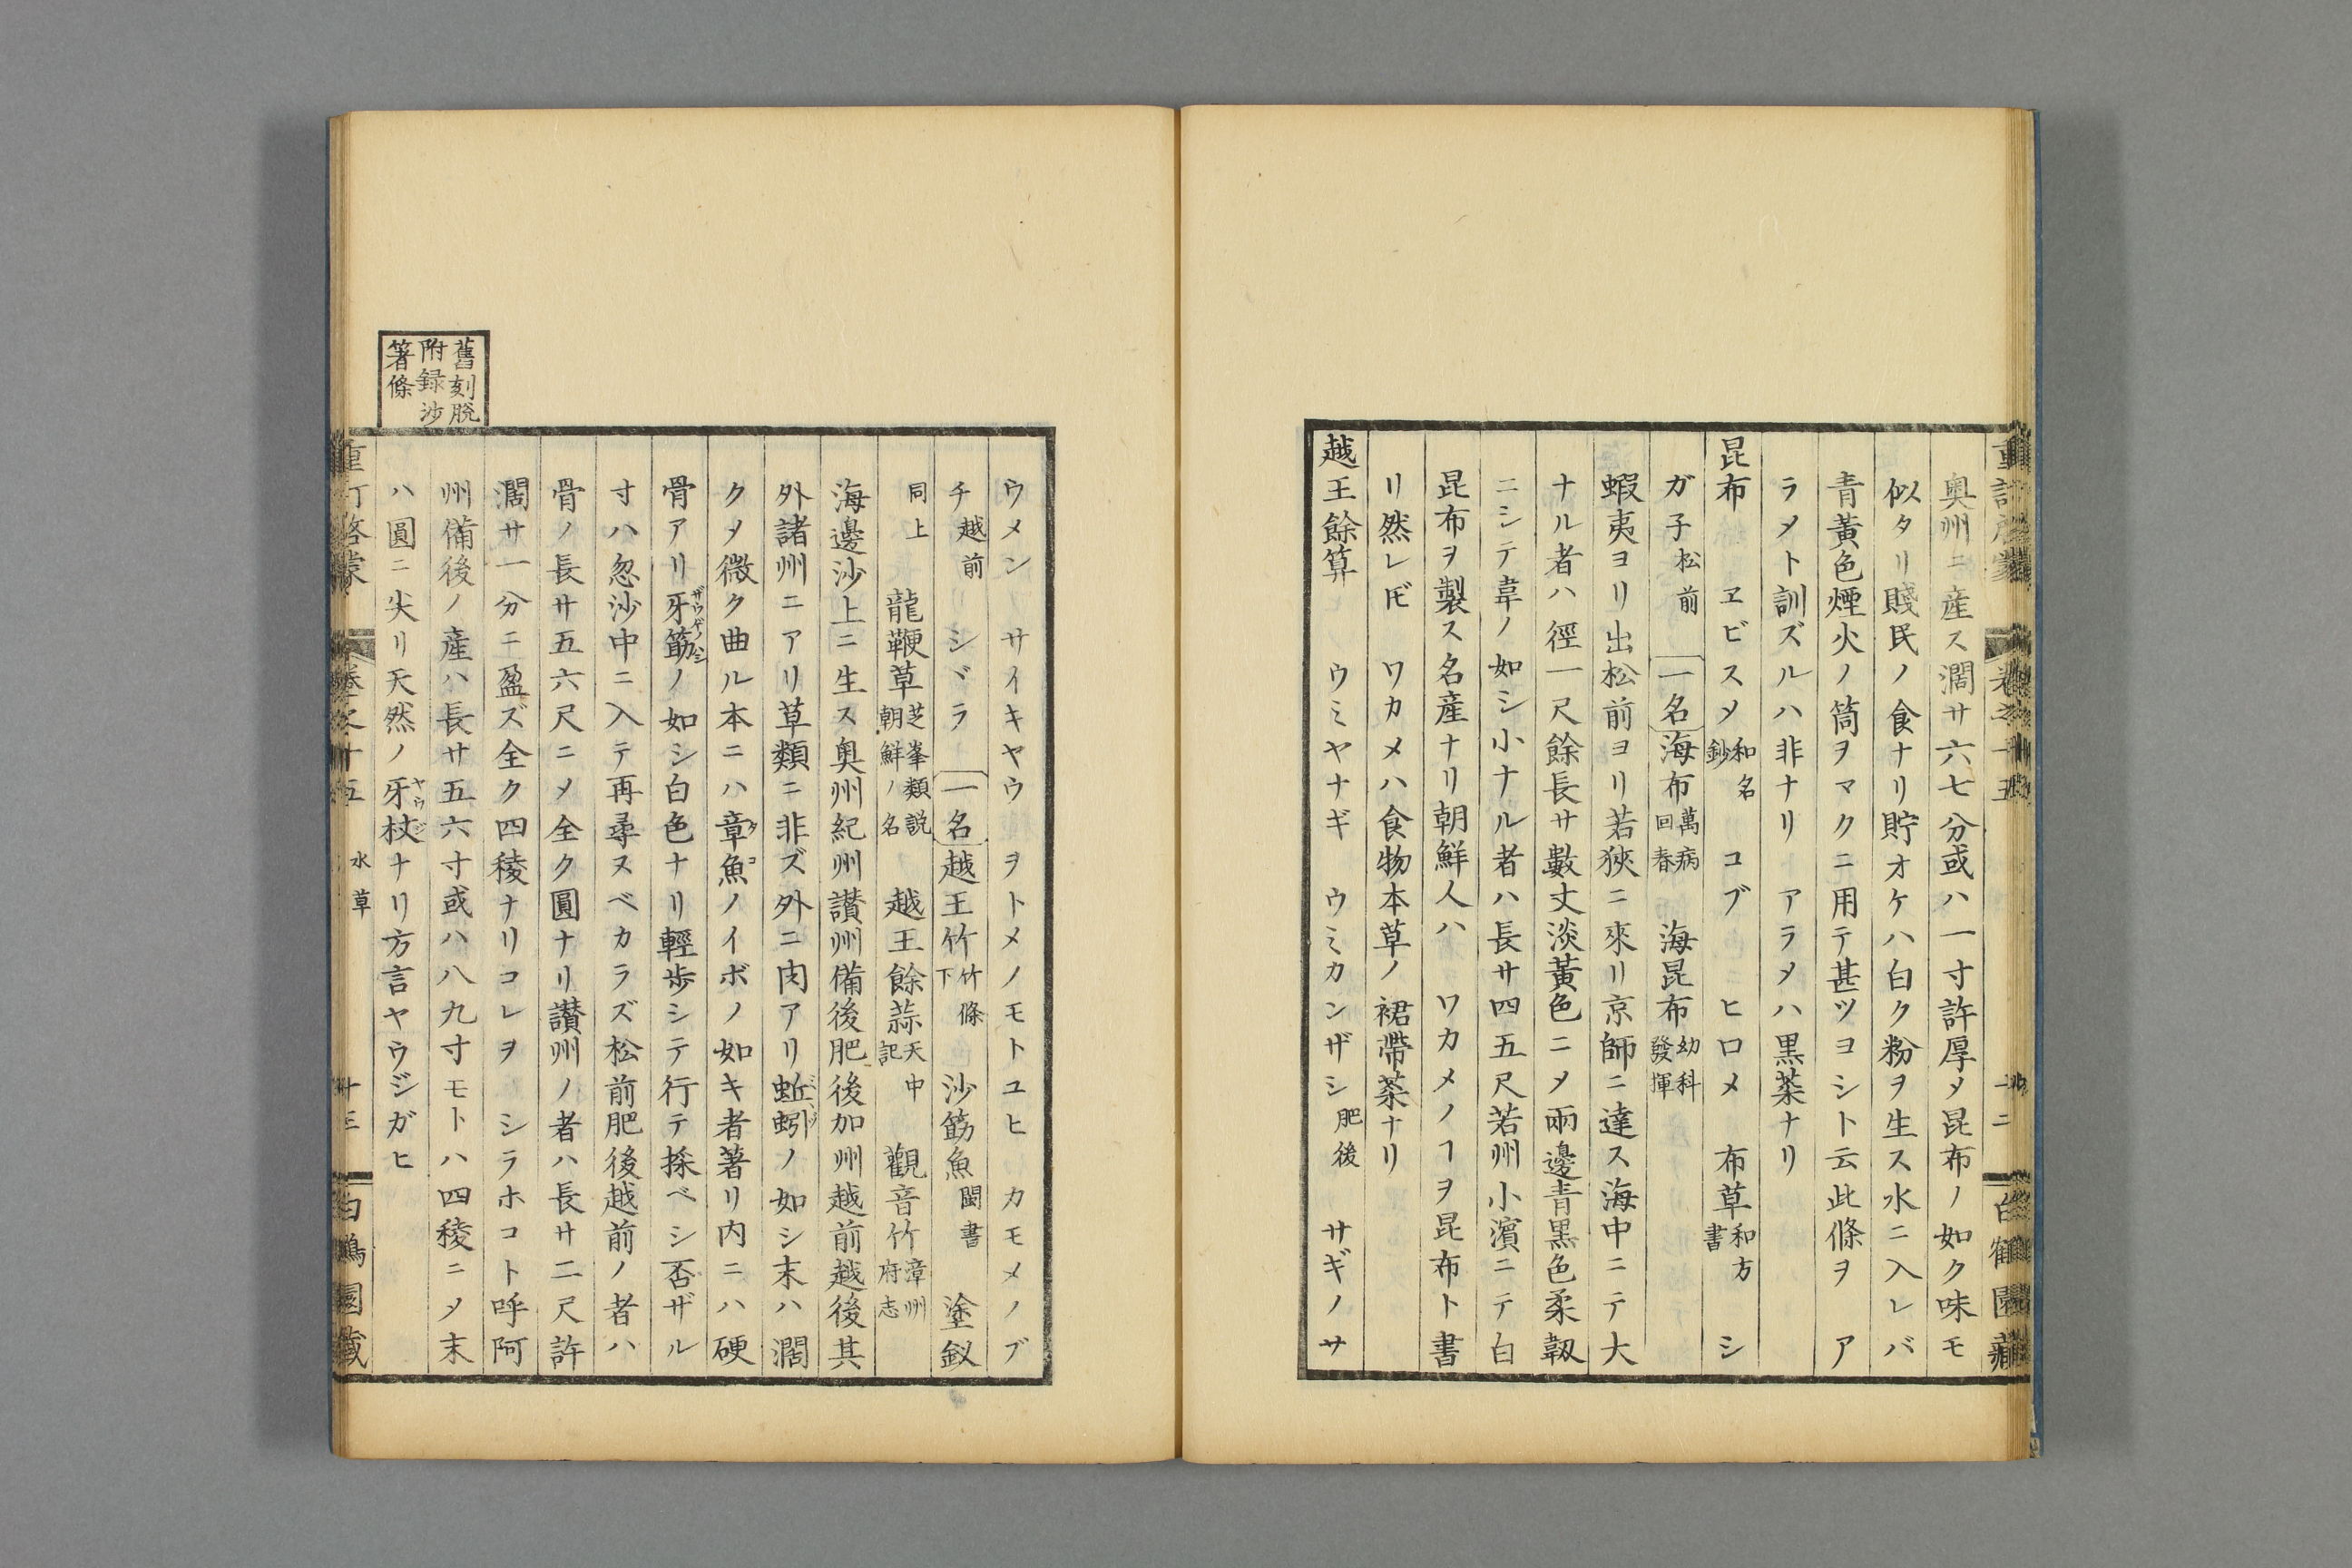 奥州ニ産ス濶サ六七分或ハ一寸許厚〆昆布ノ如ク味モ
似タリ賤民ノ食ナリ貯オケハ白ク粉ヲ生ス水ニ入レバ
青黃色煙火ノ筒ヲマクニ用テ甚ツヨシト云此條ヲ ア
ラメト訓ズルハ非ナリ アラメハ黒菜ナリ
昆布 ヱビスメ和名鈔 コブ ヒロメ 布草和方書 シ
ガ子松前 一名海布萬病回春 海昆布幼科發揮
蝦夷ヨリ出松前ヨリ若狹ニ來リ京師ニ達ス海中ニテ大
ナル者ハ徑一尺餘長サ數丈淡黃色ニ〆兩邊青黒色柔靱
ニシテ韋ノ如シ小ナル者ハ長サ四五尺若州小濵ニテ白
昆布ヲ製ス名産ナリ朝鮮人ハ ワカメノヿヲ昆布ト書
リ然レ𪜈 ワカメハ食物本草ノ裙帶菜ナリ
越王餘算 ウミヤナギ ウミカンザシ肥後 サギノサ
ウメン サイキヤウ ヲトメノモトユヒ カモメノブ
チ越前 シヾラ 一名越王竹竹條下 沙筯魚閩書 塗釵
同上 龍鞭草芝峯類説朝鮮ノ名 越王餘蒜天中記 觀音竹漳州府志
海邊沙上ニ生ス奥州紀州讃州備後肥後加州越前越後其
外諸州ニアリ草類ニ非ズ外ニ肉アリ蚯蚓ノ如シ末ハ濶
ク〆微ク曲ル本ニハ章魚タコノイボノ如キ者著リ内ニハ硬
骨アリ牙筯ザウゲノハシノ如シ白色ナリ輕歩シテ行テ採ベシ否ザル
寸ハ忽沙中ニ入テ再尋ヌベカラズ松前肥後越前ノ者ハ
骨ノ長サ五六尺ニ〆全ク圓ナリ讃州ノ者ハ長サ二尺許
濶サ一分ニ盈ズ全ク四稜ナリコレヲ シラホコト呼阿
州備後ノ産ハ長サ五六寸或ハ八九寸モトハ四稜ニ〆末
ハ圓ニ尖リ天然ノ牙杖ヤウジナリ方言ヤウジガヒ
舊刻脱
附録沙
箸條
卷之十五 水草 十三